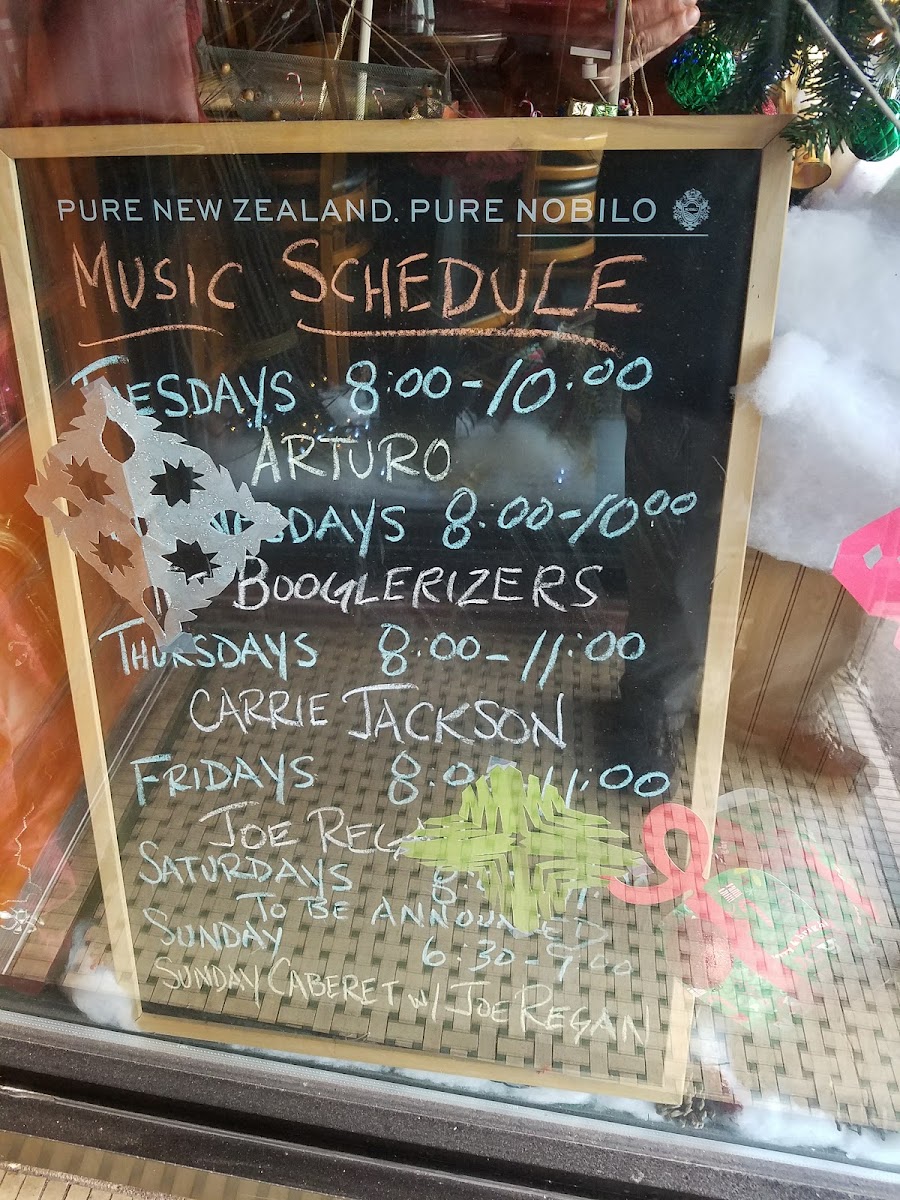 PURE NEW ZEALAND. PURE NOBILO
MUSIC SCHEDULE
TUESDAYS 8:00-10:00
ARTURO
8:00-10:00
BOOGLERIZERS
THURSDAYS 8:00-11:00
CARRIE JACKSON
FRIDAYS 11:00
JOE
SATURDAYS
TO BE ANNOUNCED
SUNDAY 6:30-9:00
SUNDAY CABERET W/ JOE REGAN